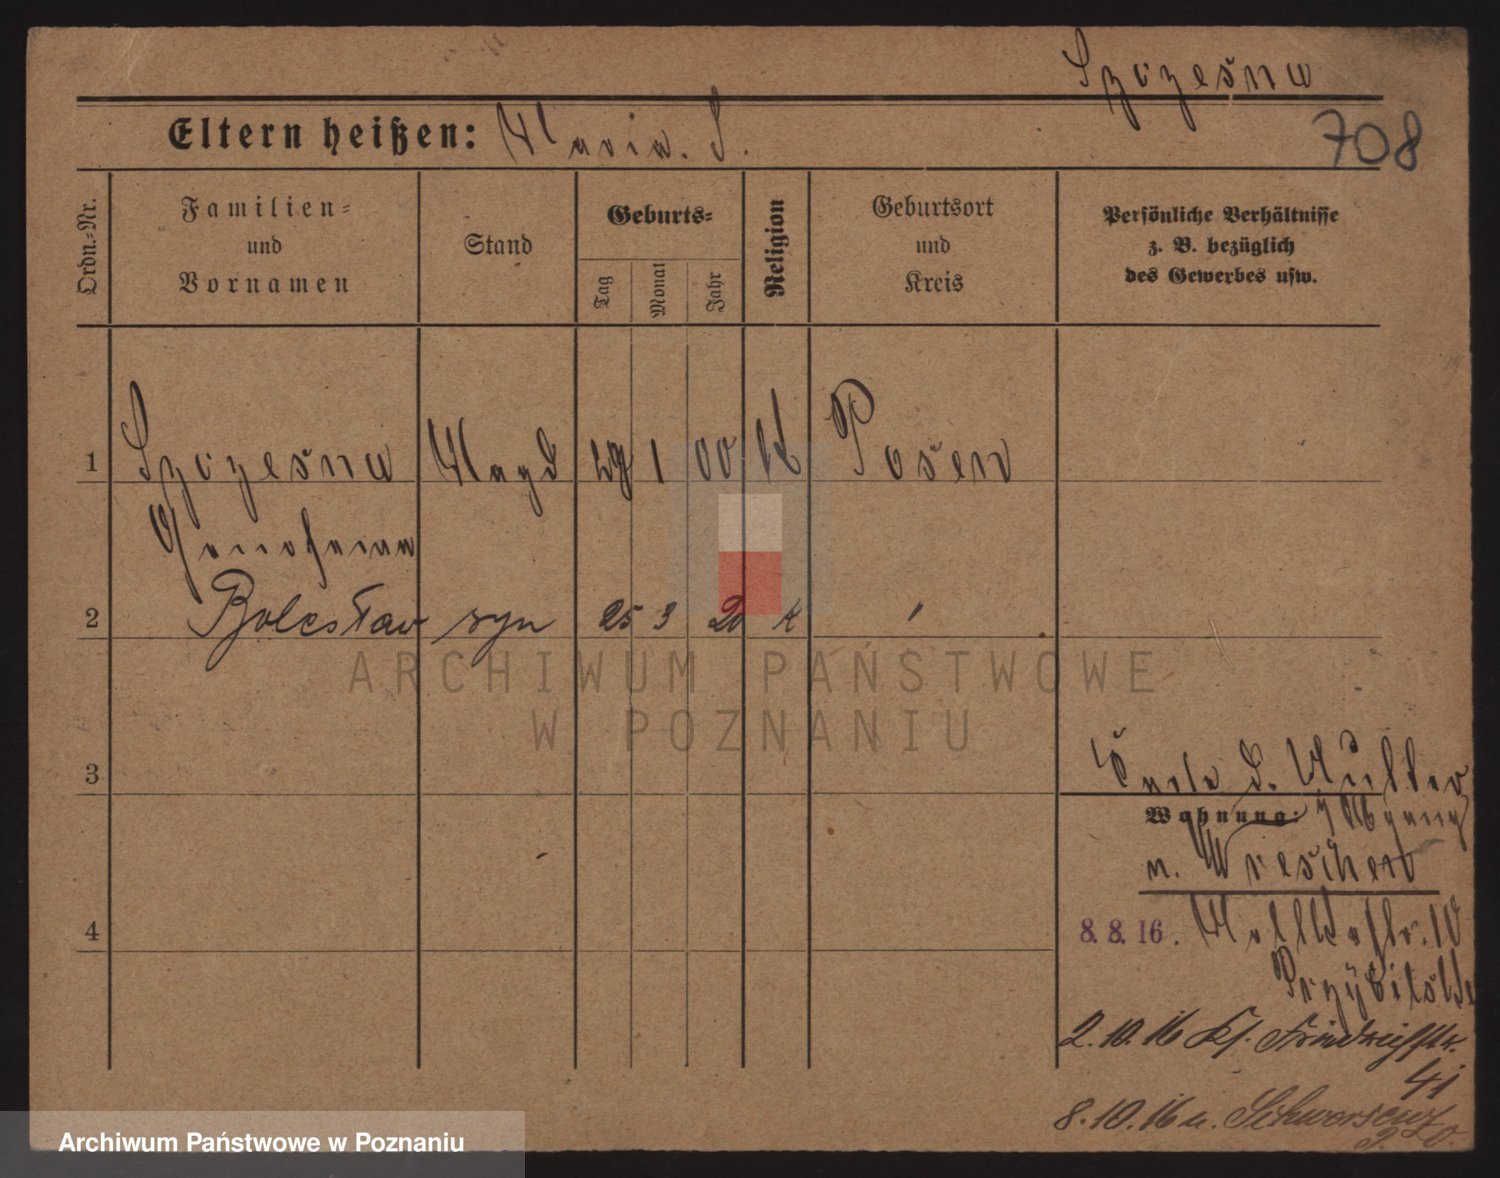 Szczesna
Eltern heißen: Maria. S.
708
Ordn.-Nr.
Familien-
und
Vornamen
Stand
Geburts-
Tag
Monat
Jahr
Religion
Geburtsort
und
Kreis
Persönliche Verhältnisse
z. B. bezüglich
des Gewerbes usw.
1 Szczesna Magd 1 00 K Posen
2 Bolesław syn 25 3 20 K
3
Wohnung:
n. Wreschen
4
8. 8. 16.
Przybilski
2. 10. 16 Kf. Friedrichstr.
41
8. 10. 16 n. Schwersenz
ARCHIWUM PAŃSTWOWE
W POZNANIU
Archiwum Państwowe w Poznaniu